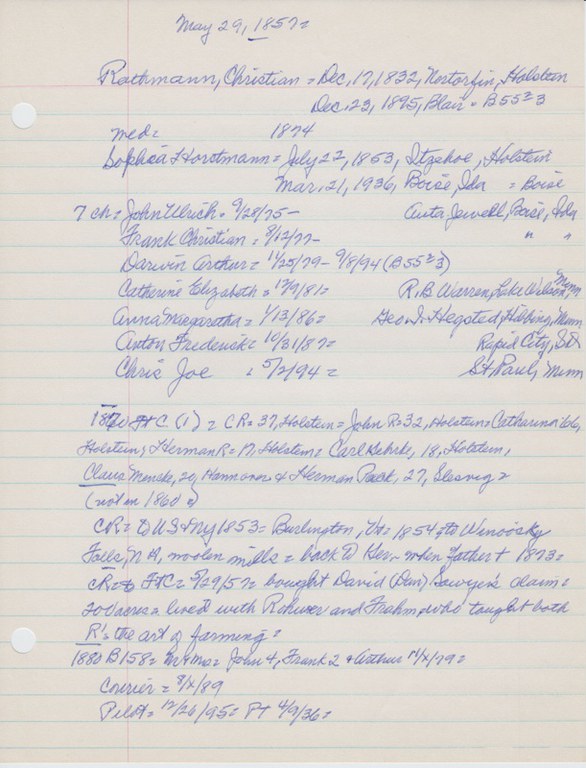 May 29, 1857=
Rathmann, Christian = Dec. 17, 1832, Nortorfin, Holstein
Dec. 23, 1895, Blair = B55=3
med= 1874
Sophia Horstmann = July 22, 1853, Itzehoe, Holstein
Mar. 21, 1936, Boise, Ida = Boise
7 ch = John Ulrich = 9/28/75- Anta Jewell, Boise, Ida
Frank Christian = 8/12/77- " "
Darwin Arthur = 11/25/79 - 9/8/94 (B55=3)
Catherine Elizabeth = 12/9/81= R.B. Warren, Lake Wilson, Minn
Anna Margaratha = 1/13/86= Geo. I. Hegsted, Hibbing, Minn
Anton Frederick = 10/31/87= Rapid City,
Chris Joe = 5/2/94 = St Paul, Minn
1870 FtC (1) = CR=37, Holstein = John R=32, Holstein = Catharina
Holstein; Herman R= 17, Holstein = Carl 18, Holstein,
Claus 29, Hannover & Herman 27, Slesvig =
(not in 1860=)
CR= to US=NY 1853= Burlington, Vt= 1854= to Winooski
Falls, woolen mills = back to when father + 1873=
CR= to FtC= 5/29/57= bought David (Dan) Sawyer's claim=
200 acres = lived with Rohwer and Frahm, who taught both
R's= the art of farming=
1880 B158= Mr+Mrs= John 4, Frank 2 + Arthur 11/X/79=
Courier = 8/X/89
Pilot= 12/26/95= PT 4/9/36=